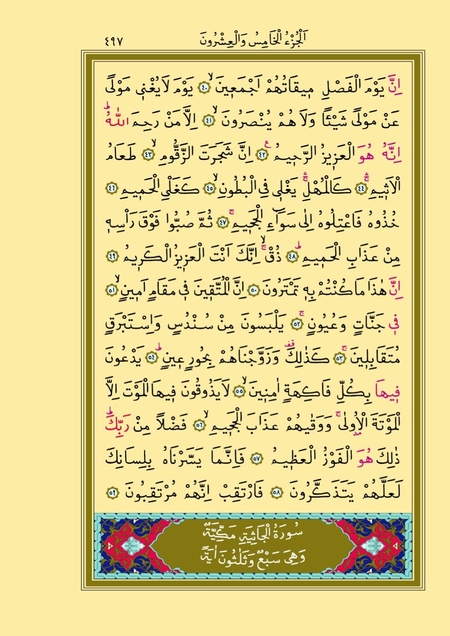 اَلْجُزْءُ الْخَامِسُ وَالْعِشْرُونَ ٤٩٧
اِنَّ يَوْمَ الْفَصْلِ م۪يقَاتُهُمْ اَجْمَع۪ينَۙ ٤٠ يَوْمَ لَا يُغْن۪ي مَوْلًى
عَنْ مَوْلًى شَيْـًٔا وَلَا هُمْ يُنْصَرُونَۙ ٤١ اِلَّا مَنْ رَحِمَ اللّٰهُۜ
اِنَّهُ هُوَ الْعَز۪يزُ الرَّح۪يمُ۟ ٤٢ اِنَّ شَجَرَتَ الزَّقُّومِۙ ٤٣ طَعَامُ
الْاَث۪يمِۚۛ ٤٤ كَالْمُهْلِۚۛ يَغْل۪ي فِي الْبُطُونِۙ ٤٥ كَغَلْيِ الْحَم۪يمِ ٤٦
خُذُوهُ فَاعْتِلُوهُ اِلٰى سَوَٓاءِ الْجَح۪يمِۚ ٤٧ ثُمَّ صُبُّوا فَوْقَ رَأْسِه۪
مِنْ عَذَابِ الْحَم۪يمِۜ ٤٨ ذُقْۙ اِنَّكَ اَنْتَ الْعَز۪يزُ الْكَر۪يمُ ٤٩
اِنَّ هٰذَا مَا كُنْتُمْ بِه۪ تَمْتَرُونَ ٥٠ اِنَّ الْمُتَّق۪ينَ ف۪ي مَقَامٍ اَم۪ينٍۙ ٥١
ف۪ي جَنَّاتٍ وَعُيُونٍۚ ٥٢ يَلْبَسُونَ مِنْ سُنْدُسٍ وَاِسْتَبْرَقٍ
مُتَقَابِل۪ينَۚ ٥٣ كَذٰلِكَ۠ وَزَوَّجْنَاهُمْ بِحُورٍ ع۪ينٍۜ ٥٤ يَدْعُونَ
ف۪يهَا بِكُلِّ فَاكِهَةٍ اٰمِن۪ينَۙ ٥٥ لَا يَذُوقُونَ ف۪يهَا الْمَوْتَ اِلَّا
الْمَوْتَةَ الْاُو۫لٰىۚ وَوَقٰيهُمْ عَذَابَ الْجَح۪يمِۙ ٥٦ فَضْلًا مِنْ رَبِّكَۜ
ذٰلِكَ هُوَ الْفَوْزُ الْعَظ۪يمُ ٥٧ فَاِنَّمَا يَسَّرْنَاهُ بِلِسَانِكَ
لَعَلَّهُمْ يَتَذَكَّرُونَ ٥٨ فَارْتَقِبْ اِنَّهُمْ مُرْتَقِبُونَ ٥٩
سُورَةُ الْجَاثِيَةِ مَكِّيَّةٌ
وَهِيَ سَبْعٌ وَثَلٰثُونَ اٰيَةً